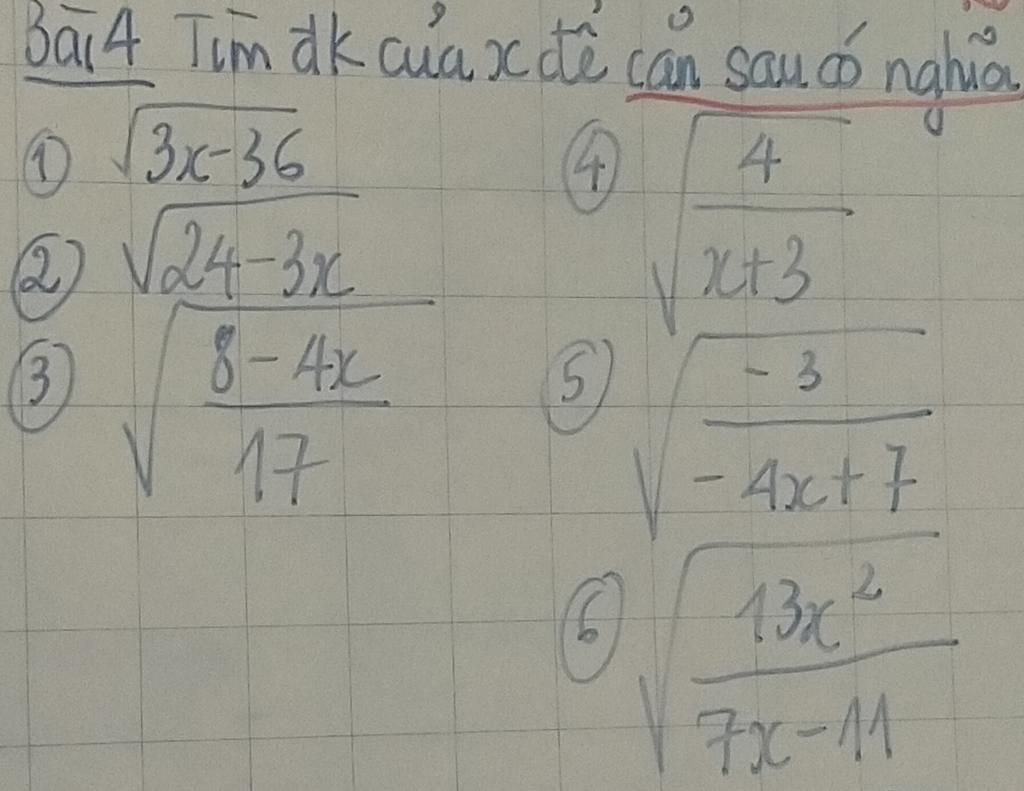 Bài 4 Tìm đk của x để căn sau có nghĩa
① √(3x-36)
② √(24-3x)
③ √((8-4x)/17)
④ √(4/(x+3))
⑤ √(-3/(-4x+7))
⑥ √(13x²/(7x-11))